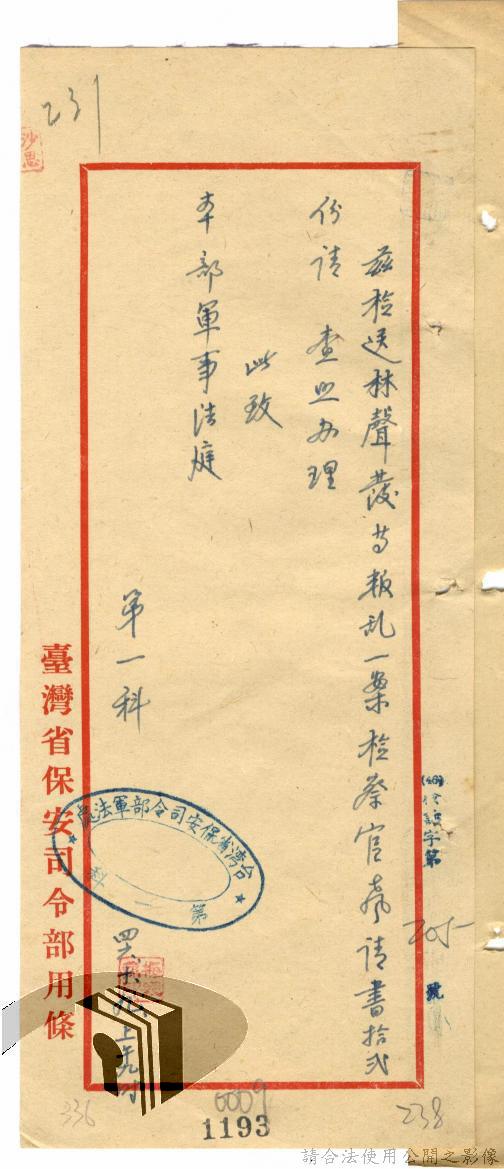 231
沙思
(46)
字第
205
號
茲檢送林聲發等叛乱一案檢察官聲請書拾弍
份請 查照办理
此致
本部軍事法庭
第一科
台灣省保安司令部軍法處
第一科
四六、十、九、上午九時
臺灣省保安司令部用條
336
0009
1193
238
請合法使用公開之影像